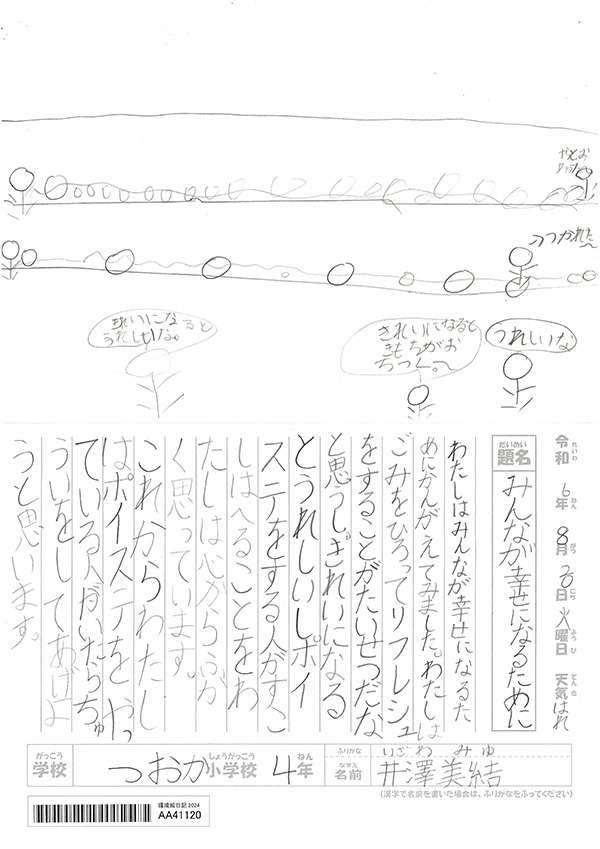 つかれた〜
きれいになると
うれしいな。
きれいになると
きもちがお
ちつく。〜
うれしいな
令和 6年 8月 20日 火曜日 天気 はれ
れいわ ねん がつ にち ようび てんき
だいめい
題名 みんなが幸せになるために
わたしはみんなが幸せになるた
めにかんがえてみました。わたしは
ごみをひろってリフレシュ
をすることがたいせつだな
と思うし。きれいになる
とうれしいしポイ
ステをする人がすこ
しはへることをわ
たしは心からふか
く思っています。
これからわたし
はポイステをやっ
ている人がいたらちゅ
ういをしてあげよ
うと思います。
がっこう しょうがっこう ねん ふりがな いざわ みゆ
学校 つおか小学校 4年 なまえ 名前 井澤美結
(漢字で名前を書いた場合は、ふりがなをふってください)
環境絵日記2024
AA41120